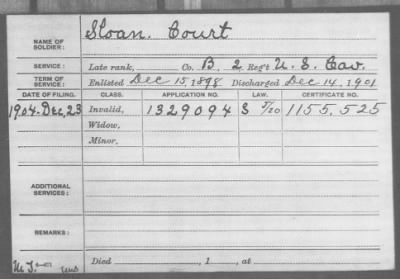 NAME OF SOLDIER: Sloan. Court
SERVICE: Late rank, Co. B, 2 Reg't U. S. Cav.
TERM OF SERVICE: Enlisted Dec 15, 1898 Discharged Dec 14, 1901
DATE OF FILING. CLASS. APPLICATION NO. LAW. CERTIFICATE NO.
1904. Dec, 23 Invalid, 1329094 1155.525
Widow,
Minor,
ADDITIONAL SERVICES:
REMARKS:
Died , 1 , at